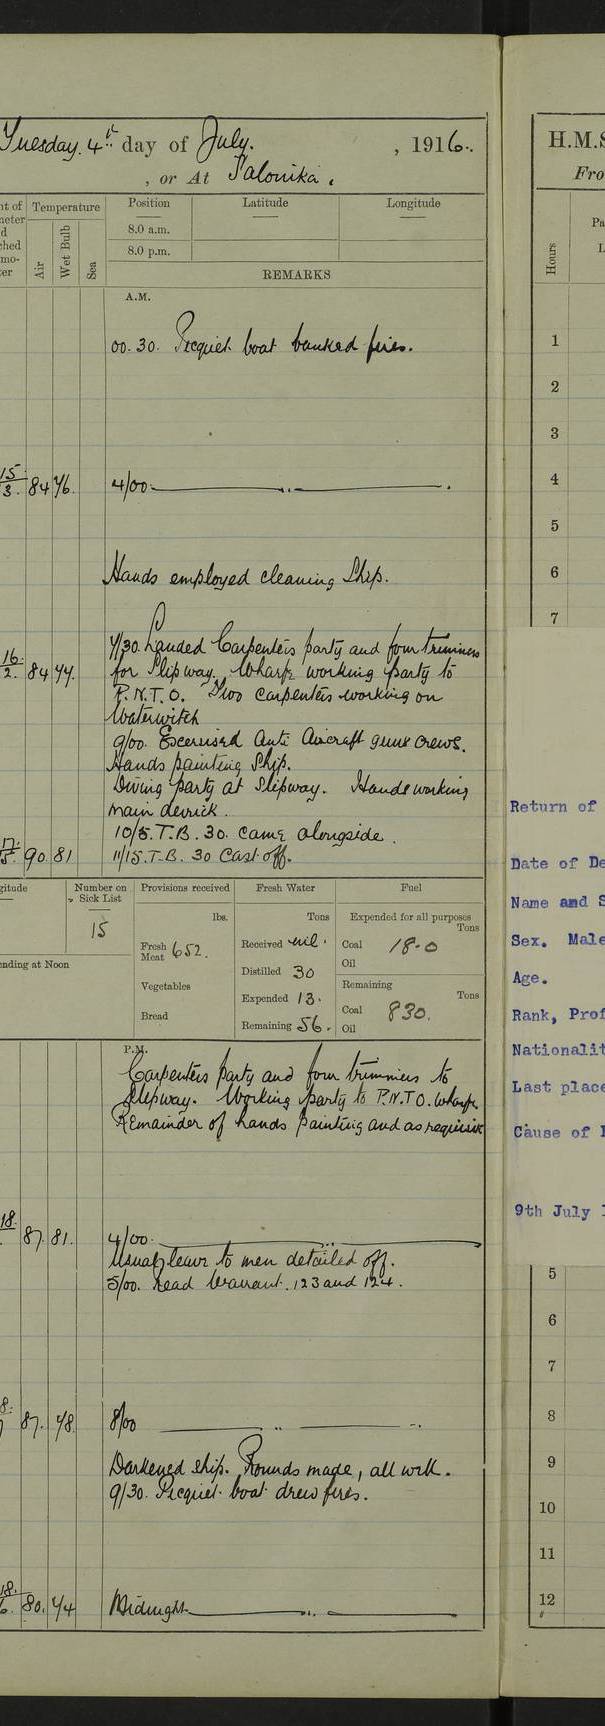 Tuesday. 4th day of July. , 1916.
, or At Salonika.
Temperature
Air
Wet Bulb
Sea
Position
Latitude
Longitude
8.0 a.m.
8.0 p.m.
REMARKS
A.M.
00.30. Picquet boat banked fires.
15
3. 84 76. 4/00
Hands employed cleaning Ship.
7/30. Landed Carpenters party and four trimmers
16
2. 84 77. for Slipway. Wharfe working party to
P.N.T.O. Two carpenters working on
Waterwitch
9/00. Exercised Anti Aircraft guns crews.
Hands painting Ship.
Diving party at Slipway. Hands working
main derrick.
10/5. T.B. 30. came alongside.
17
5. 90. 81 11/15. T.B. 30 Cast off.
gitude
Number on Sick List
15
ending at Noon
Provisions received
lbs.
Fresh Meat 652.
Vegetables
Bread
Fresh Water
Tons
Received nil.
Distilled 30
Expended 13.
Remaining 56.
Fuel
Expended for all purposes
Tons
Coal 18.0
Oil
Remaining
Tons
Coal 830.
Oil
P.M.
Carpenters party and four trimmers to
Slipway. Working party to P.N.T.O. Wharfe.
Remainder of hands painting and as requisite
18
87. 81. 4/00.
Usual leave to men detailed off.
5/00. Read Warrant. 123 and 124.
8.
87. 78. 8/00
Darkened ship. Rounds made, all well.
9/30. Picquet boat drew fires.
18.
6. 80. 74 Midnight
H.M.S
Fro
Hours
Pa
L
1
2
3
4
5
6
7
Return of
Date of De
Name and S
Sex. Male
Age.
Rank, Prof
Nationalit
Last place
Cause of
9th July 1
5
6
7
8
9
10
11
12